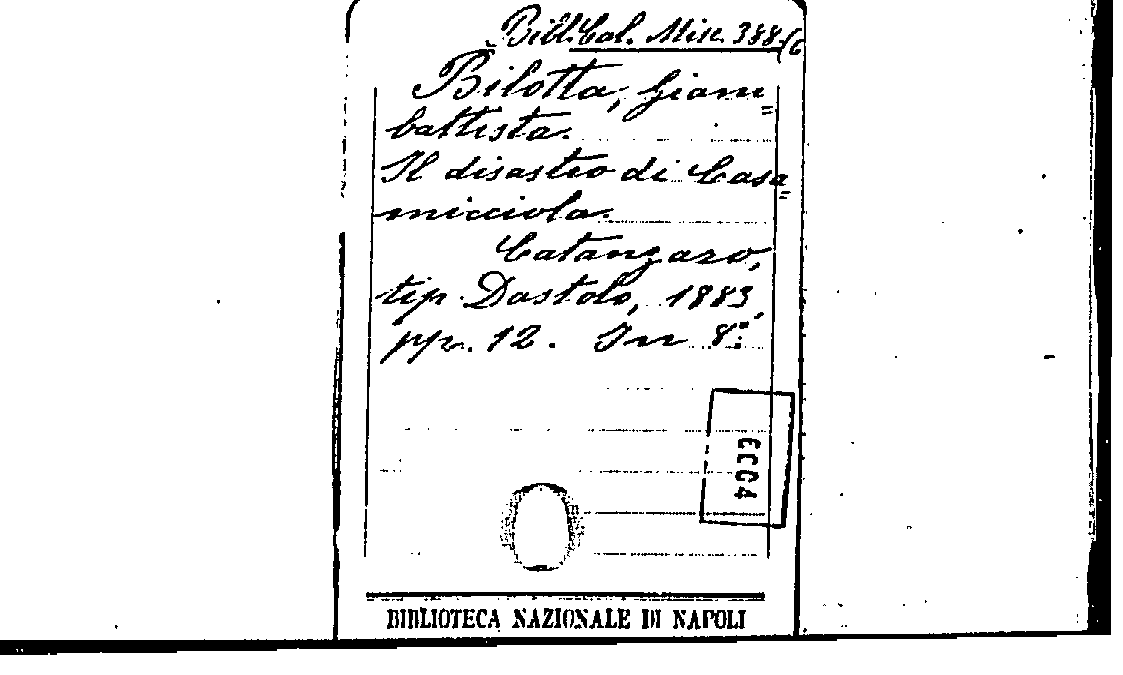 Bibl. Cal. Misc. 388 (6
Bilotta, Giam=
battista.
Il disastro di Casa=
micciola.
Catanzaro,
tip. Dastolo, 1883,
pp. 12. In 8º.
CCC4
BIBLIOTECA NAZIONALE DI NAPOLI